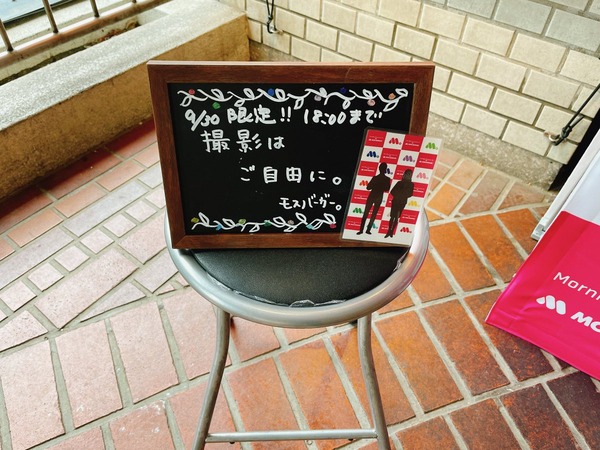 9/30 限定!! 18:00まで
撮影は
ご自由に。
モスバーガー。
Morni
MO